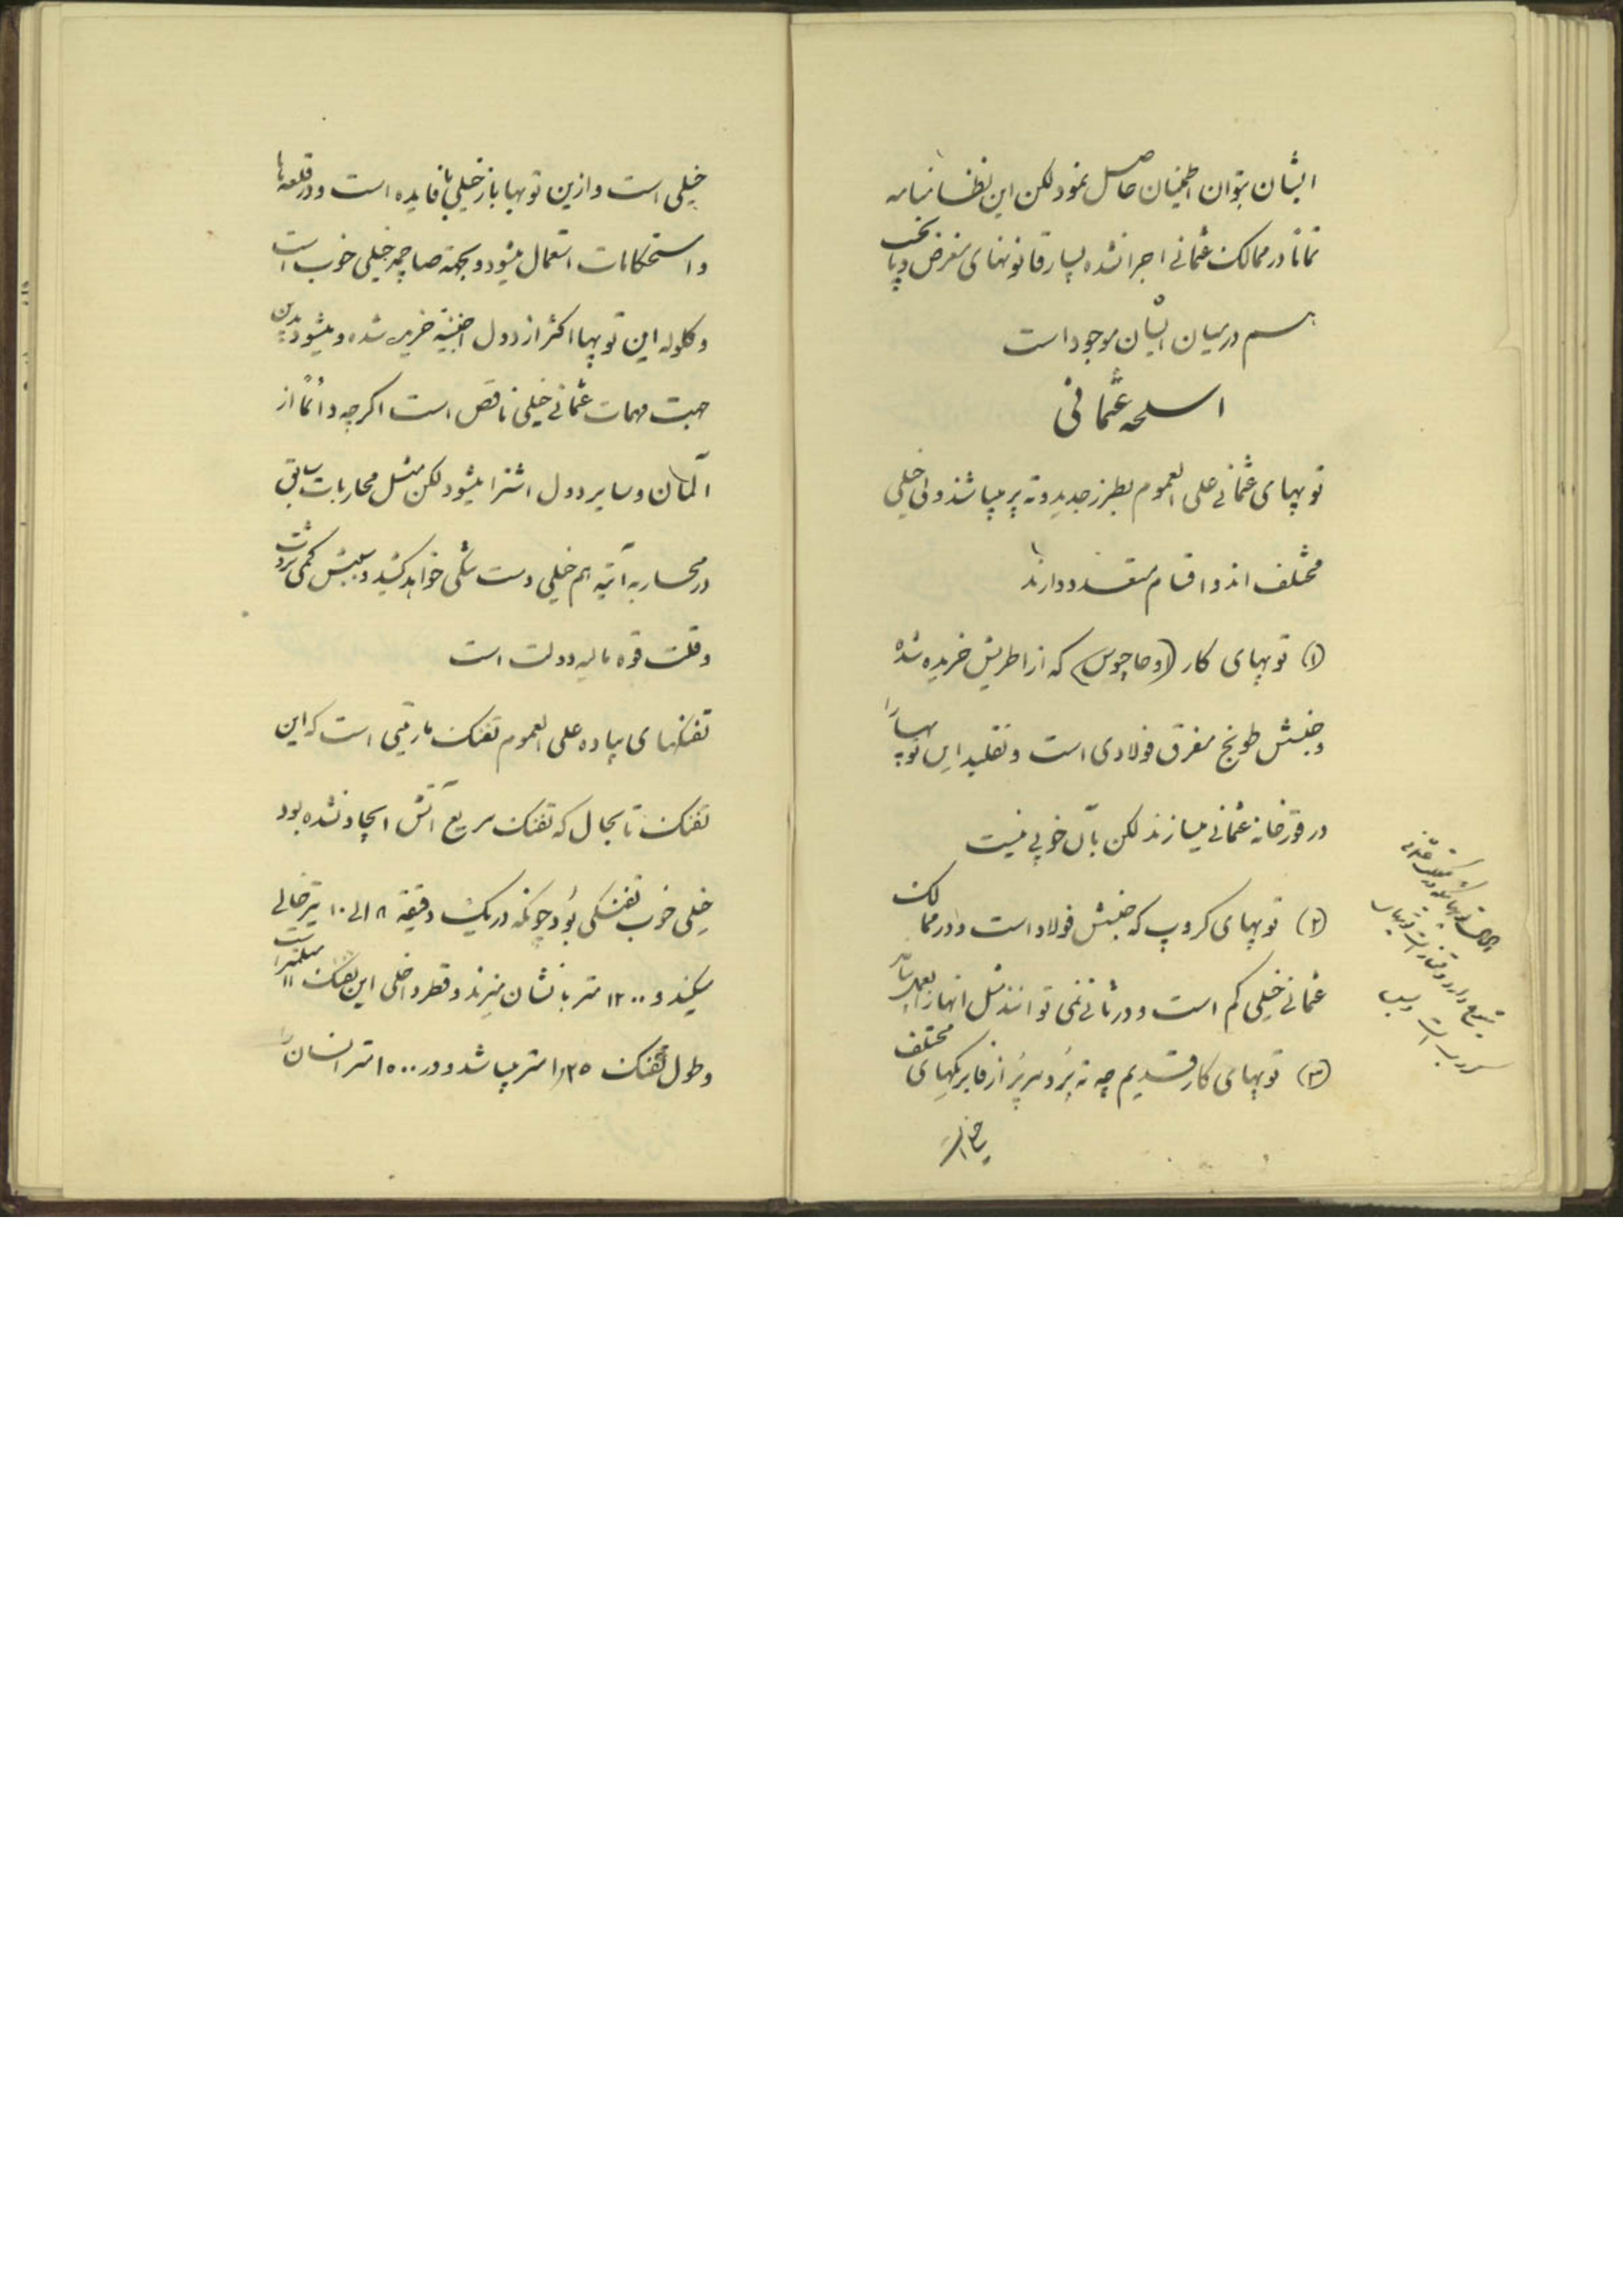 ایشان بتوان اطمینان حاصل نمود لکن این نظامنامه
تماماً در ممالک عثمانی اجرا نشده بسیار قانونهای مغرض و بی
هم در میان ایشان موجود است
اسلحه عثمانی
توپهای عثمانی علی العموم بطرز جدید و ته پر میباشند ولی خیلی
مختلف اند و اقسام متعدد دارند
(۱) توپهای کار (اوخاچوس) که از اطریش خریده شده
و جنسش طونج مفرق فولادی است و تقلید این توپها را
در قورخانه عثمانی میسازند لکن بآن خوبی نیست
(۲) توپهای کروپ که جنسش فولاد است و در ممالک
عثمانی خیلی کم است و در ثانی نمی توانند مثل انها را بعمل بیاورند
(۳) توپهای کار قدیم چه ته پُر و سر پُر از فابریکهای مختلف
خیلی است و ازین توپها باز خیلی با فایده است و در قلعه ها
و استحکامات استعمال میشود و بجهة صاچمه خیلی خوب است
و کلوله این توپها اکثر از دول اجنبیّه خرید شده و میشود بدین
جهت مهمات عثمانی خیلی ناقص است اکرچه دائماً از
آلمان و سایر دول اشترا میشود لکن مثل محاربات سابق
در محاربه آتیه هم خیلی دست تنکی خواهد کشید و سببش کمی ثروت
و قلت قوه مالیه دولت است
تفنکهای پیاده علی العموم تفنک مارتینی است که این
تفنک تا بحال که تفنک سریع آتش ایجاد نشده بود
خیلی خوب تفنکی بُود چونکه در یک دقیقه ۸ الی ۱۰ تیر خالی
میکنند و ۱۲۰۰ متر با نشان میزند و قطر داخلی این تفنک ۱۱ میلمتر است
و طول تفنک ۱٫۲۵ متر میباشد و در ۱۵۰۰ متر انسان را